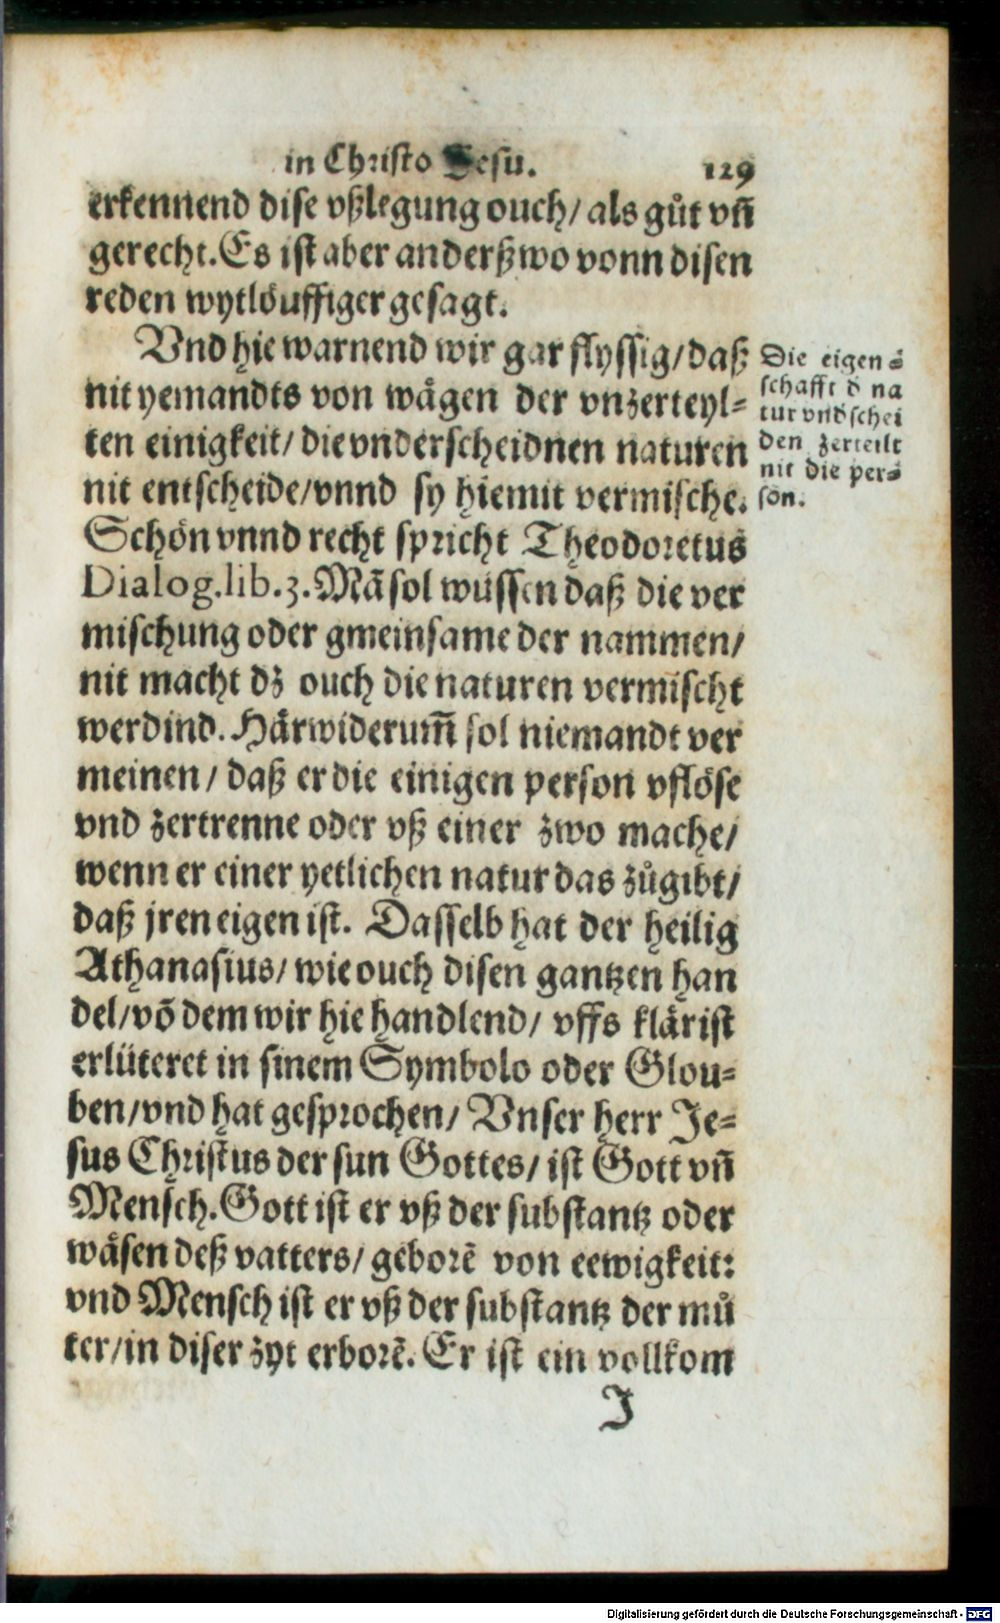 in Christo Jesu. 129
erkennend dise vßlegung ouch/ als gůt vñ
gerecht. Es ist aber anderßwo vonn disen
reden wytlöuffiger gesagt.
Vnd hie warnend wir gar flyssig/ daß
nit yemandts von wägen der vnzerteyl⸗
ten einigkeit/ die vnderscheidnen naturen
nit entscheide/ vnnd sy hiemit vermische.
Schön vnnd recht spricht Theodoretus
Dialog. lib. 3. Mã sol wüssen daß die ver
mischung oder gmeinsame der nammen/
nit macht dz ouch die naturen vermischt
werdind. Härwiderum̃ sol niemandt ver
meinen/ daß er die einigen person vflöse
vnd zertrenne oder vß einer zwo mache/
wenn er einer yetlichen natur das zůgibt/
daß jren eigen ist. Dasselb hat der heilig
Athanasius/ wie ouch disen gantzen han
del/ võ dem wir hie handlend/ vffs klärist
erlüteret in sinem Symbolo oder Glou⸗
ben/ vnd hat gesprochen/ Vnser herr Je⸗
sus Christus der sun Gottes/ ist Gott vñ
Mensch. Gott ist er vß der substantz oder
wäsen deß vatters/ geborẽ von eewigkeit:
vnd Mensch ist er vß der substantz der můͦ
ter/ in diser zyt erborẽ. Er ist ein vollkom
J
Die eigen⸗
schafft d̕ na
tur vnd schei
den zerteilt
nit die per⸗
son.
Digitalisierung gefördert durch die Deutsche Forschungsgemeinschaft - DFG